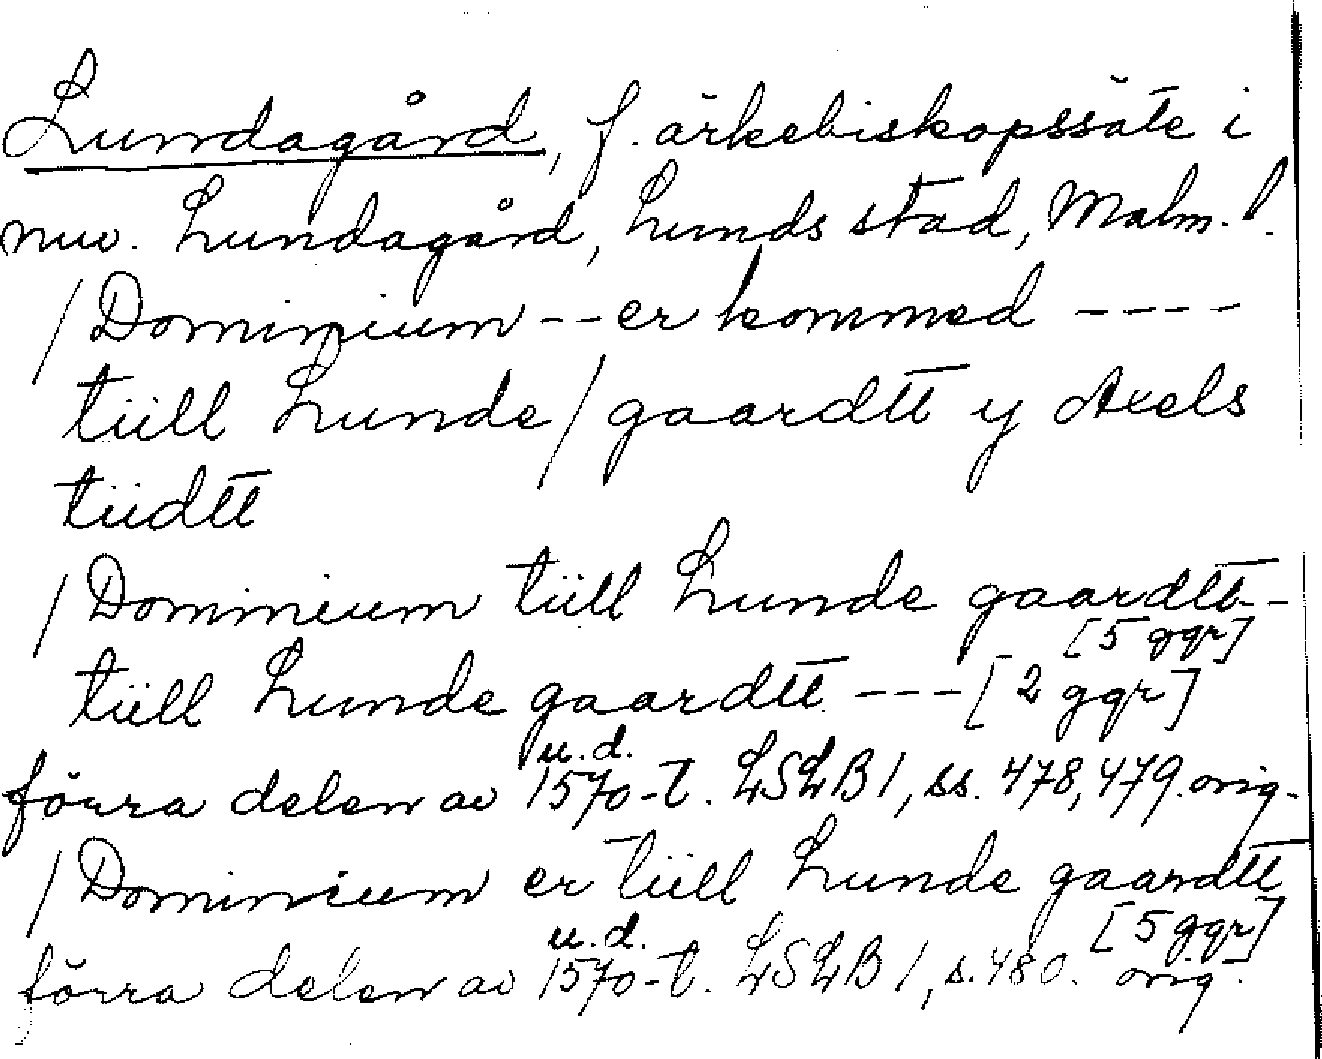 Lundagård, f. ärkebiskopssäte i
nuv. Lundagård, Lunds stad, Malm. l.
/ Dominium -- er kommed ----
tiill Lunde / gaardtt y Axels
tiidtt
/ Dominium tiill Lunde gaardtt--
[5 ggr]
tiill Lunde gaardtt ---[2 ggr]
u.d.
förra delen av 1570-t. LSLB 1, ss. 478, 479. orig.
/ Dominium er tiill Lunde gaardtt
[5 ggr]
u.d.
förra delen av 1570-t. LSLB 1, s. 480. orig.